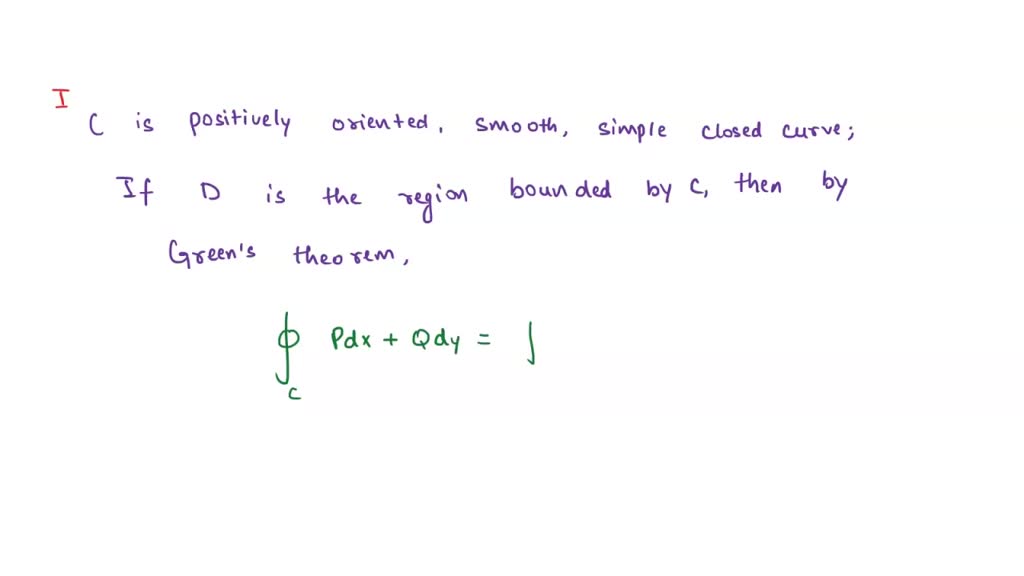 I
C is positively oriented, smooth, simple closed curve;
If D is the region bounded by C, then by
Green's theorem,
∮_C Pdx + Qdy = ∫